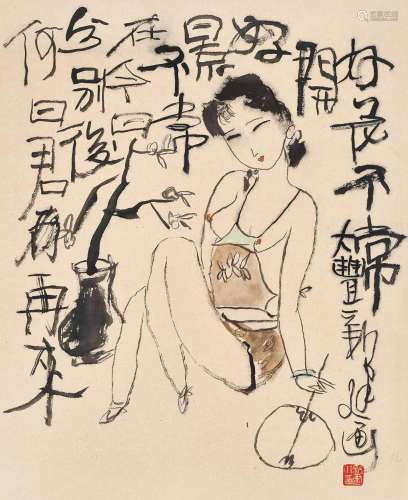 好花不常
開
好
景
不常
在今日
分別後
何日君再來
大豐新建畫